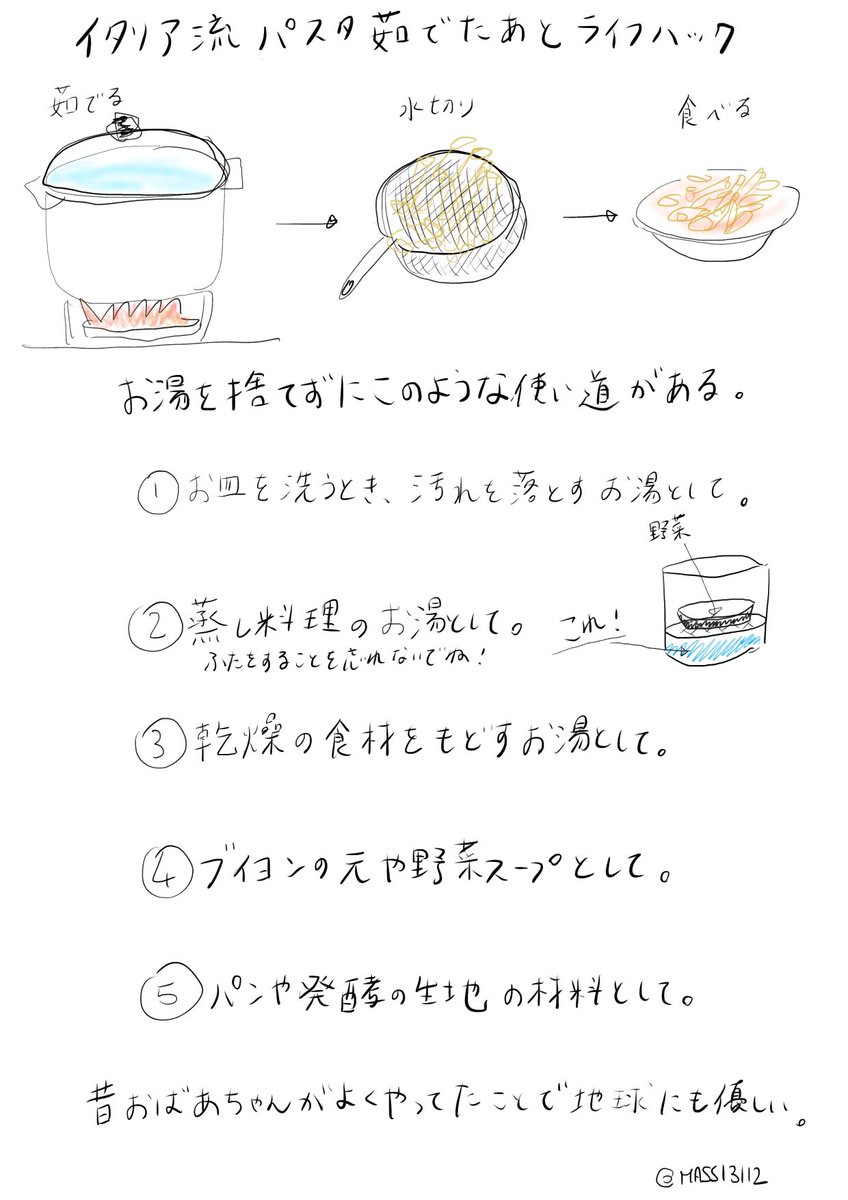 イタリア流 パスタ茹でたあとライフハック
茹でる
水切り
食べる
お湯を捨てずにこのような使い道がある。
① お皿を洗うとき、汚れを落とすお湯として。
野菜
② 蒸し料理のお湯として。 これ!
ふたをすることを忘れないでね!
③ 乾燥の食材をもどすお湯として。
④ ブイヨンの元や野菜スープとして。
⑤ パンや発酵の生地の材料として。
昔おばあちゃんがよくやってたことで地球にも優しい。
@MASSI3112